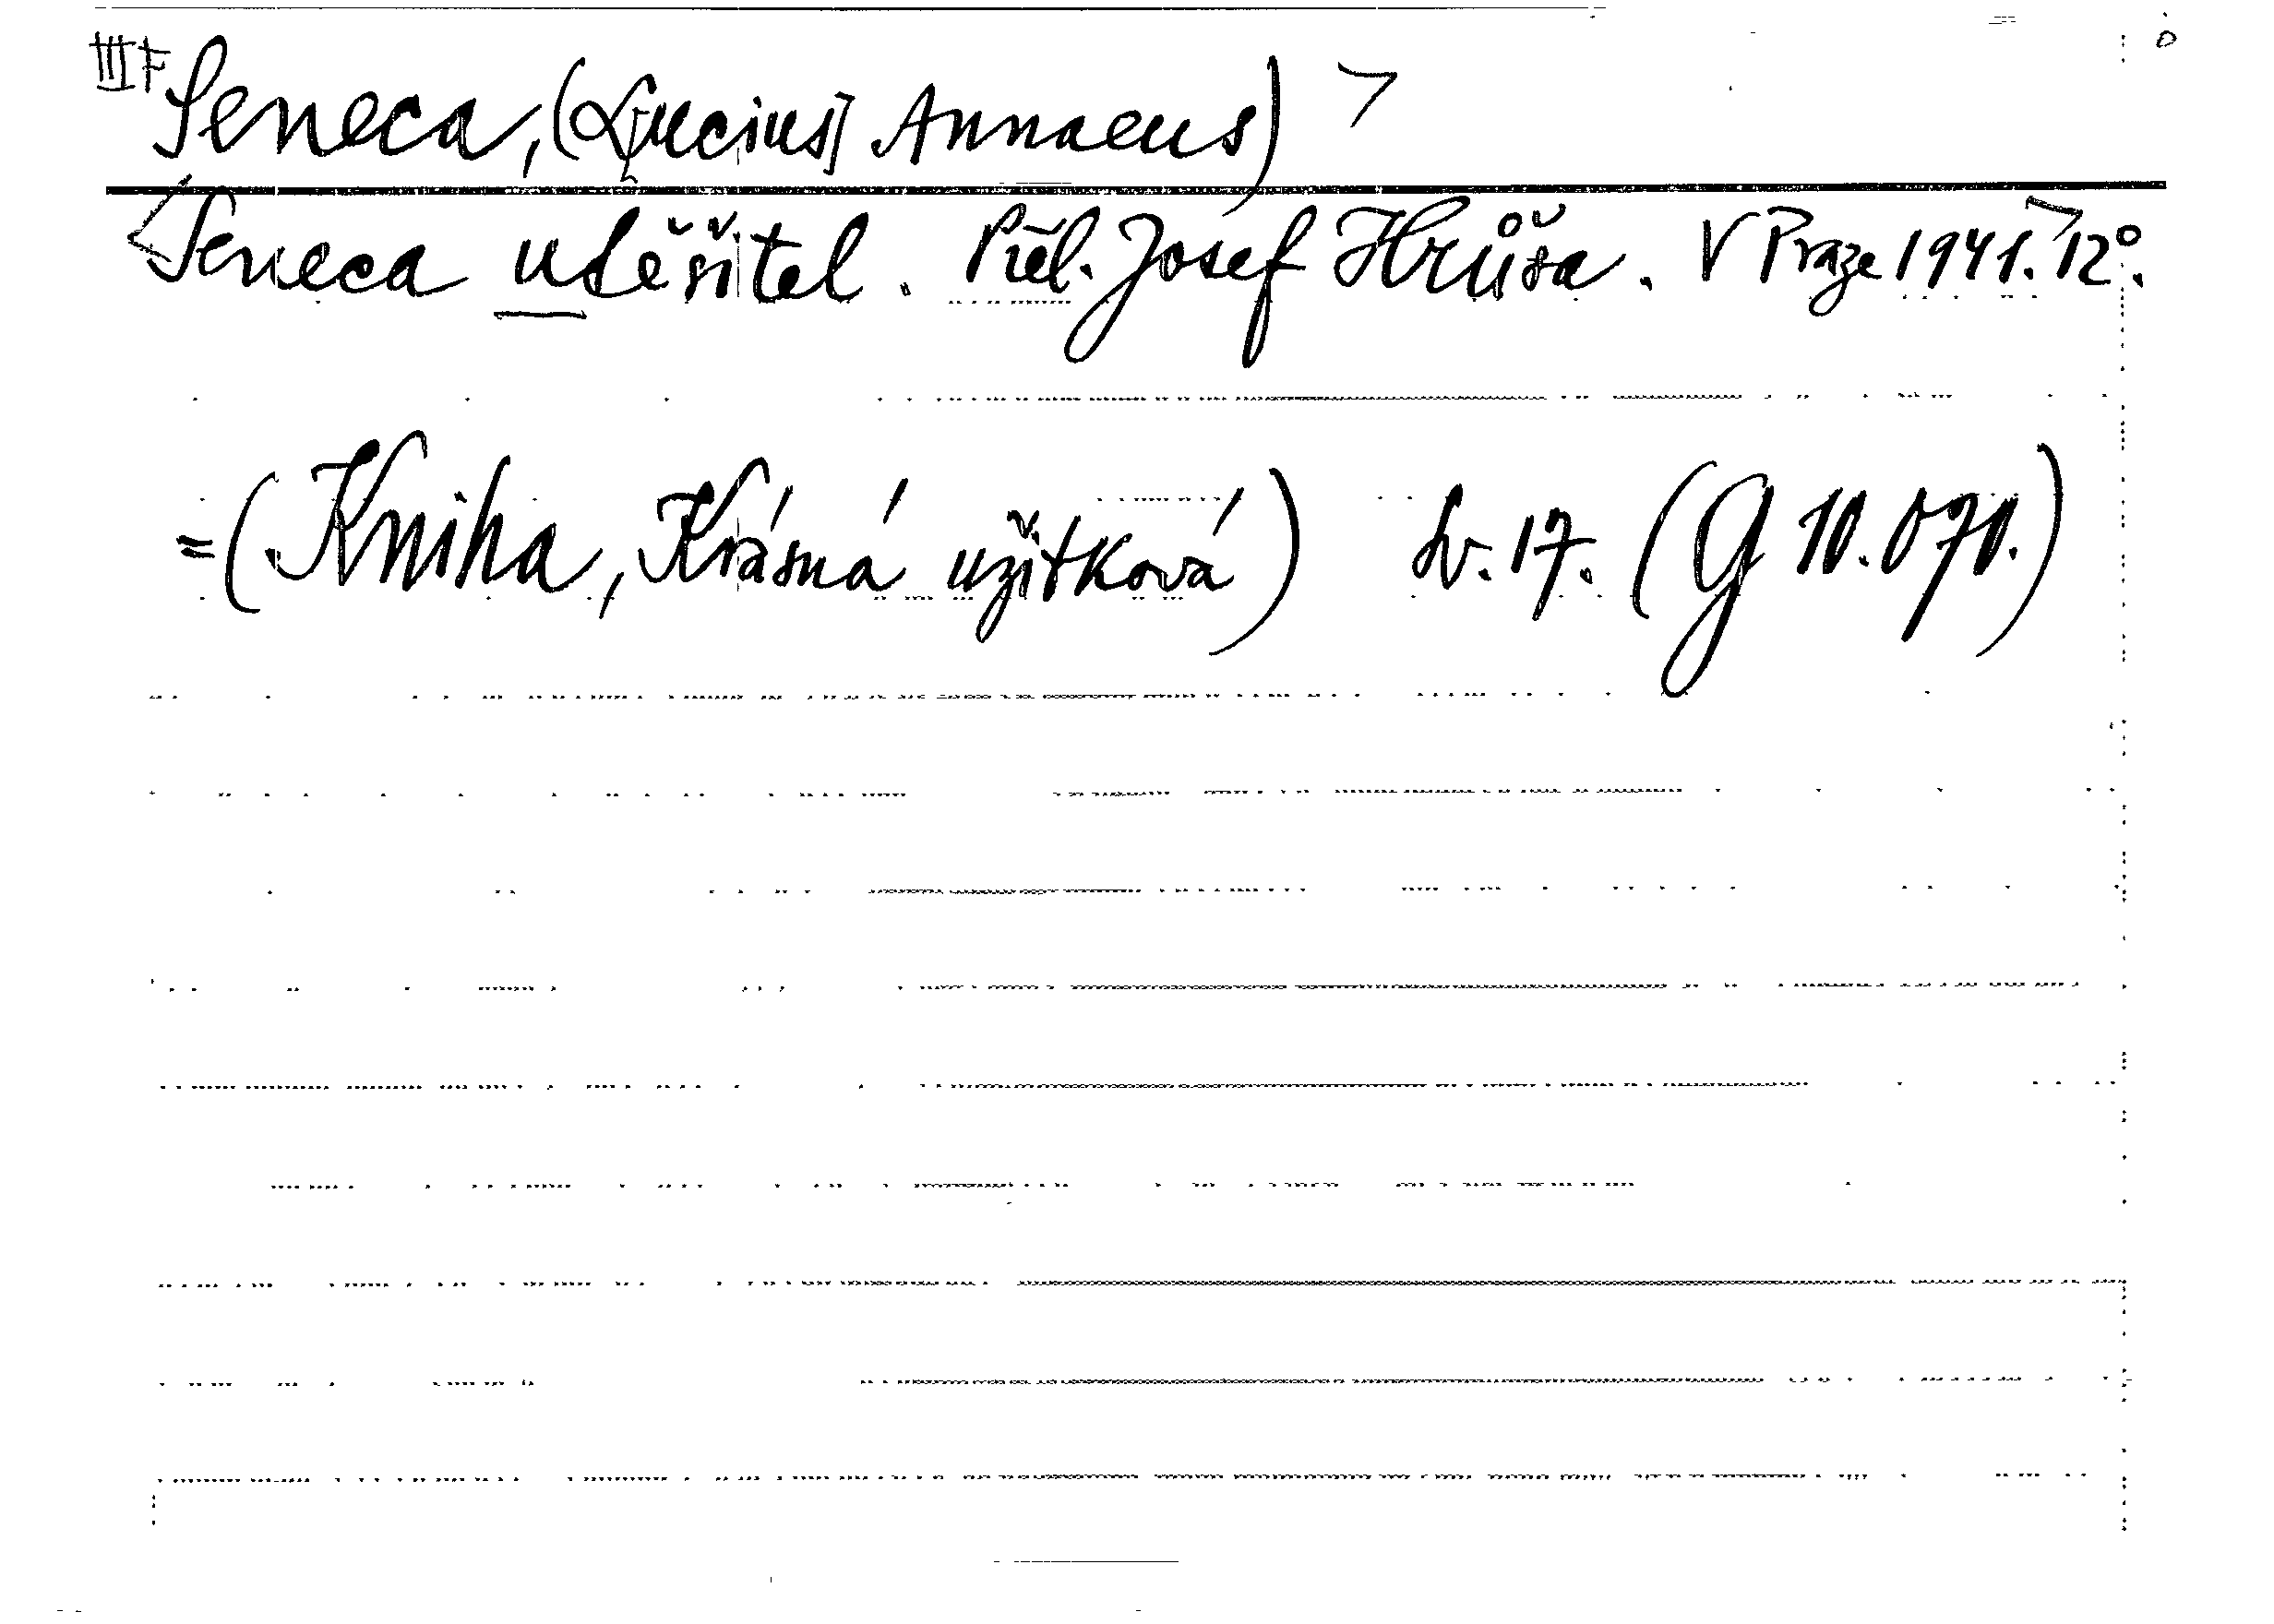 III F Seneca, (L[ucius] Annaeus)
Seneca utěšitel. Přel. Josef Hrůša. V Praze 1941. 12°.
= (Kniha, Krásná užitková) Sv. 17. (G 10.070.)